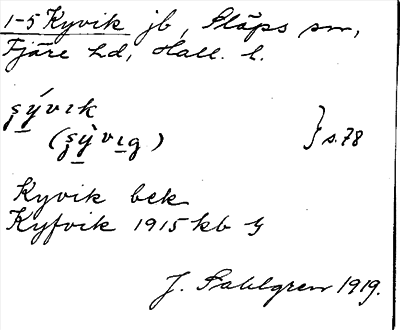 1-5 Kyvik jb, Släps sn,
Fjäre hd, Hall. l.
ʂývik
(ʂỳvig) } s. 78
Kyvik bek
Kyfvik 1915 kb
J. Sahlgren 1919.